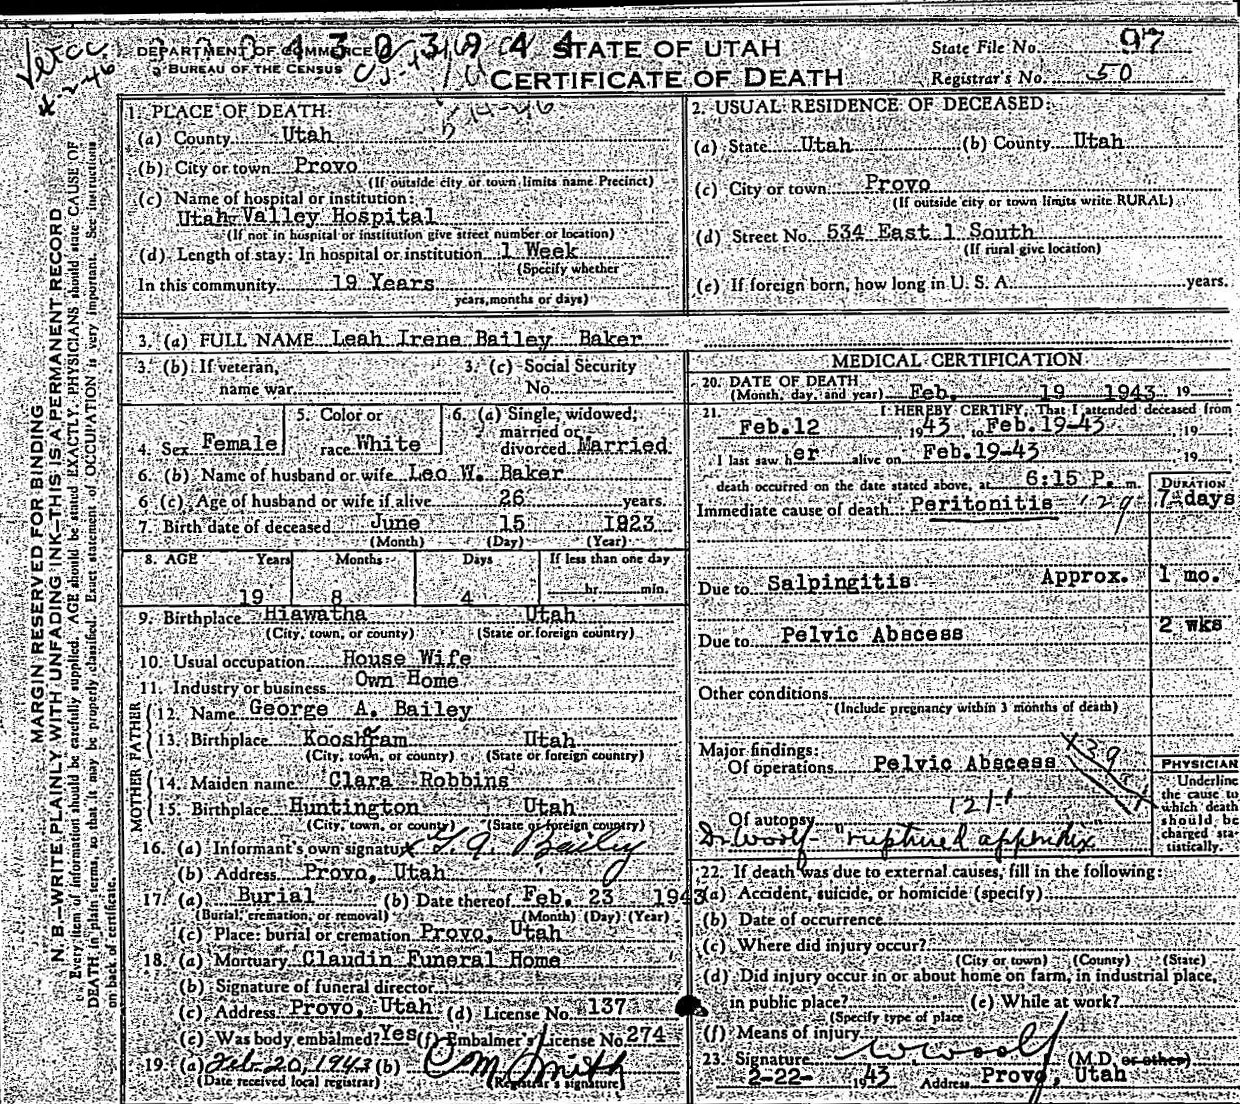 DEPARTMENT OF COMMERCE
BUREAU OF THE CENSUS
STATE OF UTAH
CERTIFICATE OF DEATH
State File No. 97
Registrar's No. 50
4-2-46
MARGIN RESERVED FOR BINDING
N. B.—WRITE PLAINLY WITH UNFADING INK—THIS IS A PERMANENT RECORD
Every item of information should be carefully supplied. AGE should be stated EXACTLY. PHYSICIANS should state CAUSE OF
DEATH in plain terms, so that it may be properly classified. Exact statement of OCCUPATION is very important. See instructions
on back of certificate.
1. PLACE OF DEATH:
(a) County Utah
(b) City or town Provo
(If outside city or town limits name Precinct)
(c) Name of hospital or institution:
Utah Valley Hospital
(If not in hospital or institution give street number or location)
(d) Length of stay: In hospital or institution 1 Week
(Specify whether
In this community 19 Years
years, months or days)
2. USUAL RESIDENCE OF DECEASED:
(a) State Utah (b) County Utah
(c) City or town Provo
(If outside city or town limits write RURAL)
(d) Street No. 534 East 1 South
(If rural give location)
(e) If foreign born, how long in U. S. A. years.
3. (a) FULL NAME Leah Irene Bailey Baker
3. (b) If veteran,
name war
3. (c) Social Security
No.
4. Sex Female
5. Color or
race White
6. (a) Single, widowed,
married or
divorced Married
6. (b) Name of husband or wife Leo W. Baker
6 (c). Age of husband or wife if alive 26 years.
7. Birth date of deceased June 15 1923
(Month) (Day) (Year)
8. AGE Years Months Days If less than one day
19 8 4 hr. min.
9. Birthplace Hiawatha Utah
(City, town, or county) (State or foreign country)
10. Usual occupation House Wife
11. Industry or business Own Home
FATHER
12. Name George A. Bailey
13. Birthplace Kooshram Utah
(City, town, or county) (State or foreign country)
MOTHER
14. Maiden name Clara Robbins
15. Birthplace Huntington Utah
(City, town, or county) (State or foreign country)
16. (a) Informant's own signature x G. A. Bailey
(b) Address Provo, Utah
17. (a) Burial (b) Date thereof Feb. 23 1943
(Burial, cremation, or removal) (Month) (Day) (Year)
(c) Place: burial or cremation Provo, Utah
18. (a) Mortuary Claudin Funeral Home
(b) Signature of funeral director
(c) Address Provo, Utah (d) License No. 137
(e) Was body embalmed? Yes (f) Embalmer's License No. 274
19. (a) Feb-20, 1943 (b) C M Smith
(Date received local registrar) (Registrar's signature)
MEDICAL CERTIFICATION
20. DATE OF DEATH
(Month, day, and year) Feb. 19 1943 19
21. I HEREBY CERTIFY, That I attended deceased from
Feb.12 1943 to Feb.19-43 19
I last saw her alive on Feb.19-43 19
death occurred on the date stated above, at 6:15 P. m.
DURATION
Immediate cause of death Peritonitis 129 7 days
Due to Salpingitis Approx. 1 mo.
Due to Pelvic Abscess 2 wks
Other conditions
(Include pregnancy within 3 months of death)
Major findings:
Of operations Pelvic Abscess
Of autopsy
Dr Woolf- "ruptured appendix
PHYSICIAN
Underline
the cause to
which death
should be
charged sta-
tistically.
22. If death was due to external causes, fill in the following:
(a) Accident, suicide, or homicide (specify)
(b) Date of occurrence
(c) Where did injury occur?
(City or town) (County) (State)
(d) Did injury occur in or about home on farm, in industrial place,
in public place? (e) While at work?
(Specify type of place
(f) Means of injury
23. Signature W Woolf (M.D. or other)
2-22- 1943 Address Provo, Utah